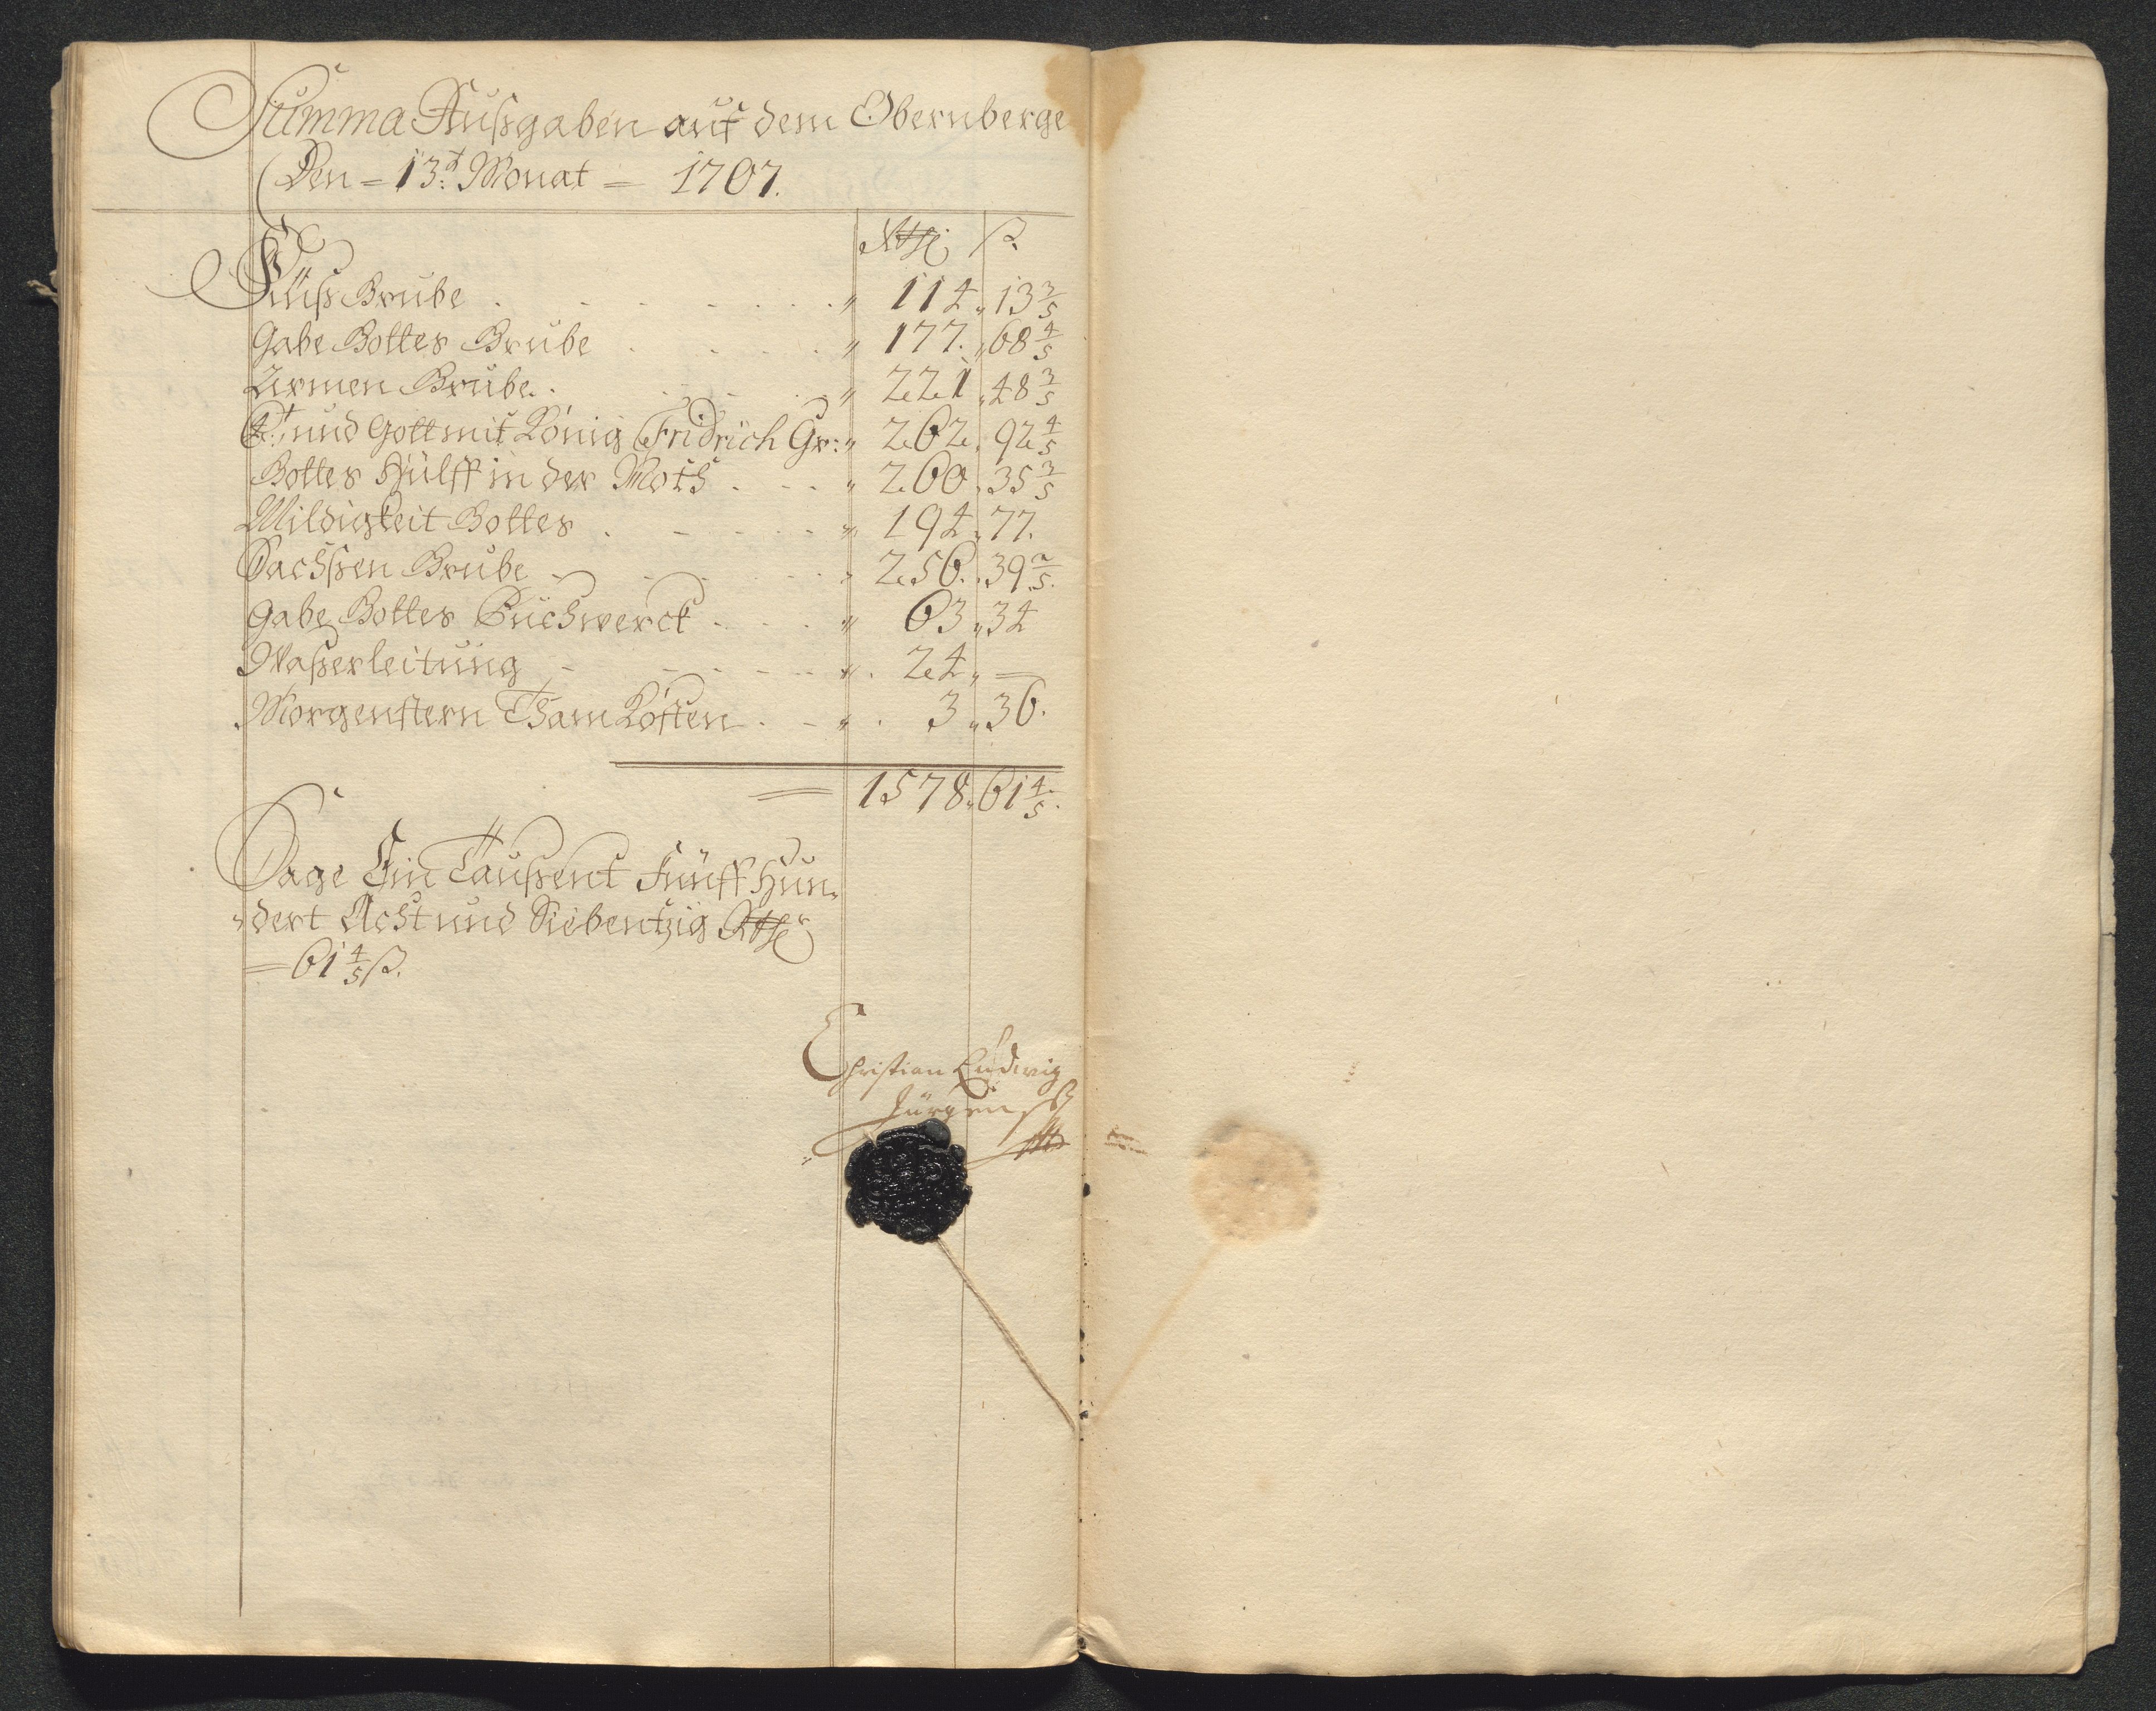 Summa Außgaben auf dem Obernberge
Den = 13t: Monat = 1707.
Rthl: ß.
Juls Grube . . . . . . " 114 " 13 3/5
Gabe Gottes Grube . . . . . " 177. " 68 4/5
Armen Grube. . . . . " 221 " 48 3/5
und Gott mit König Fridrich Gr: " 262 . 92 4/5
Gottes Hülff in der Noth . . . " 260 . 35 3/5
Mildigkeit Gottes . . . . . " 194 " 77.
Sachssen Grube . . . . . " 256. . 39 2/5.
Gabe Gottes Puchwerck . . . . " 63 " 34
Waßerleitung - - - - - " . 24 " —
Morgenstern Thamkosten . - " . 3 " 36.
= 1578 " 61 4/5.
Sage Ein Taußent Fünff Hun-
dert Acht und Siebentzig Rthlr
= 61 4/5 ß.
Christian Ludwig
Jürgens